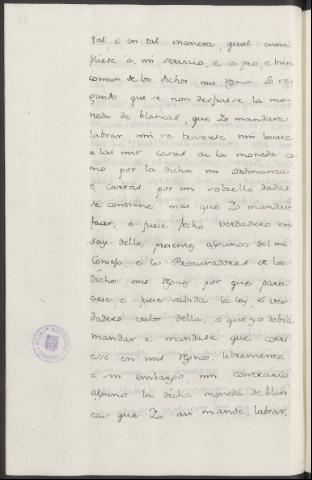 tal é en tal manera, qual cum
pliese a mi servicio, e a pro, e bien
comun de los dichos mis Rgnos. Lo se
gundo que se non desficiese la mo
neda de blancas, que Yo mandase
labrar, nin se traxiese nin levase
a las mis casas de la moneda co
mo por la dicha mi ordenanza
é cartas por mi sobrello dadas
se contiene mas que Yo mandase
facer, é fuese fecho verdadero en
say della, presentes algunos del mi
Consejo e los Procuradores de los
dichos mis Rgnos, por que pares
ciese, e fuese sabida la ley, é ver
dadero valor della, é que yo debia
mandar e mandase que corri
ese en mis Rgnos, libremente
é sin embargo, nin contrario
alguno la dicha moneda de blan
cas que Yo asi mande labrar,